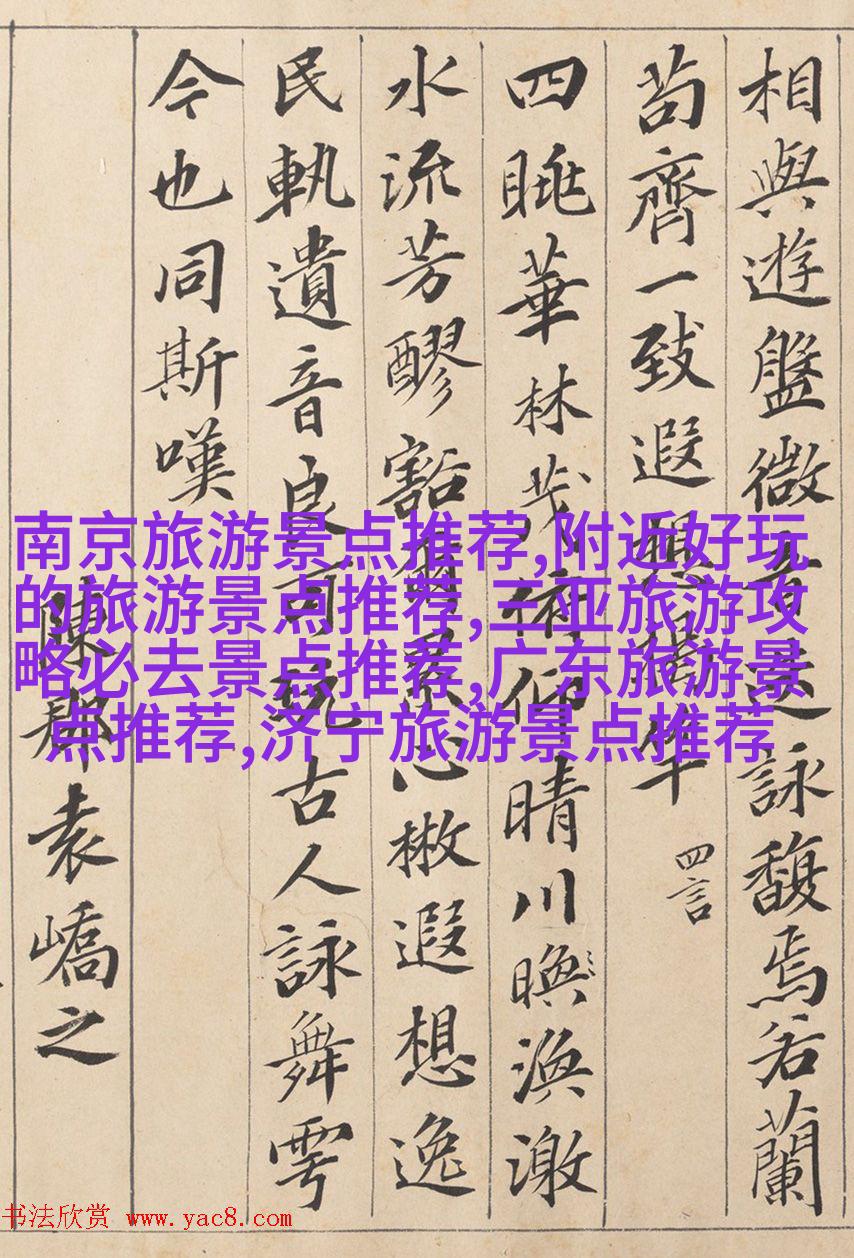 相與遊盤微音迭詠馥焉若蘭
苟齊一致遐想揭竿 四言
四眺華林茂俯仰晴川㬇渙激
水流芳醪豁爾累心散遐想逸
民軌遺音良可玩古人詠舞雩
今也同斯嘆
陳郡袁嶠之
南京旅游景点推荐,附近好玩
的旅游景点推荐,三亚旅游攻
略必去景点推荐,广东旅游景
点推荐,济宁旅游景点推荐
书法欣赏 www.yac8.com